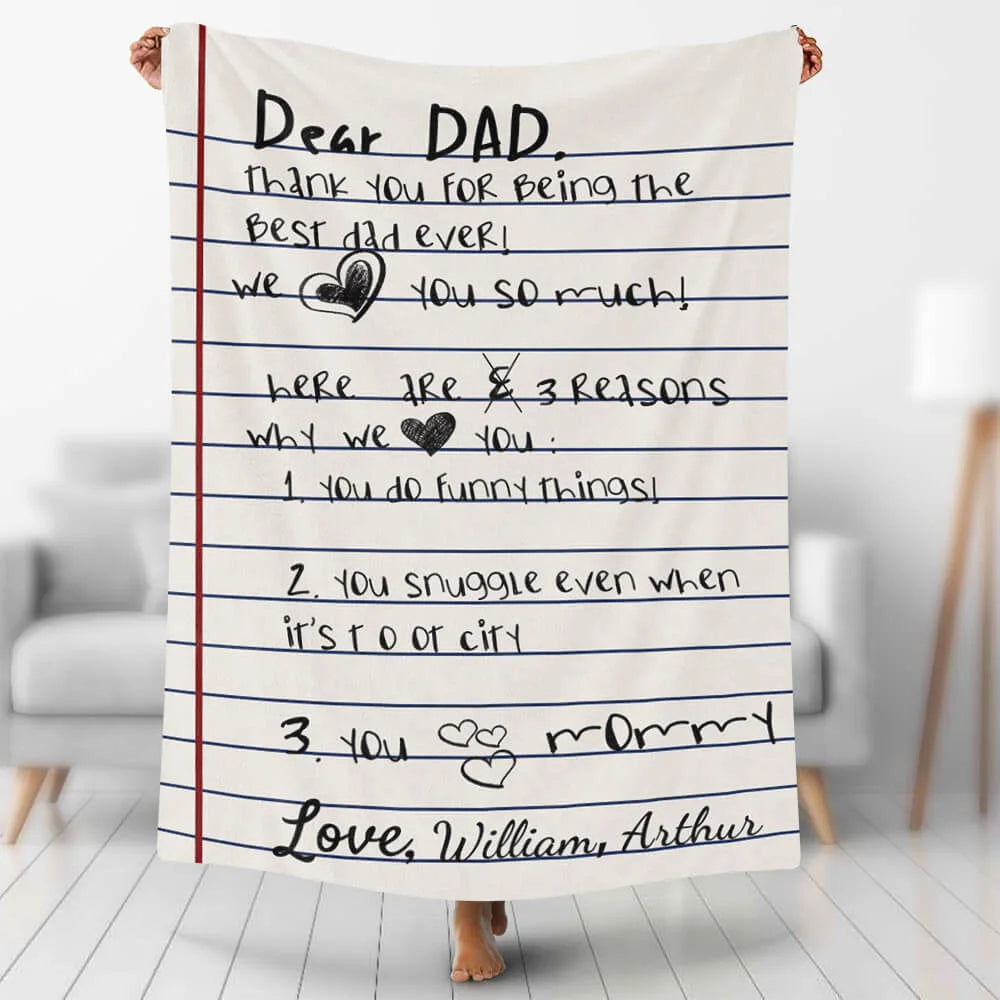 Dear DAD.
Thank you for being the
Best dad ever!
we you so much!
here are 3 Reasons
why we you:
1. you do funny things!
2. you snuggle even when
it's t o ot city
3. you mommy
Love, William, Arthur